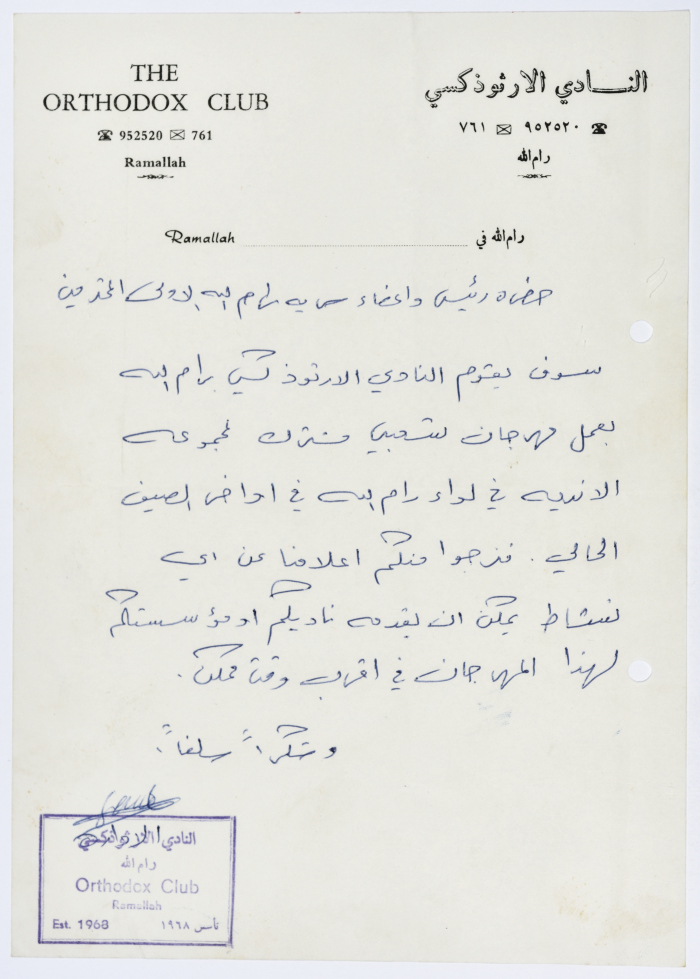 THE
ORTHODOX CLUB
☎ 952520 ✉ 761
Ramallah
النادي الارثوذكسي
☎ ٩٥٢٥٢٠ ✉ ٧٦١
رام الله
Ramallah رام الله في
حضرة رئيس واعضاء سريه رام الله الاولى المحترمين
سوف يقوم النادي الارثوذكسي برام الله
بعمل مهرجان شعبي مشترك لمجموعه
الانديه في لواء رام الله في اواخر الصيف
الحالي. فنرجوا منكم اعلامنا عن اي
نشاط يمكن ان يقدمه ناديكم او مؤسستكم
لهذا المهرجان في اقرب وقت ممكن.
وشكراً سلفاً.
النادي الارثوذكسي
رام الله
Orthodox Club
Ramallah
Est. 1968 تأسس ١٩٦٨